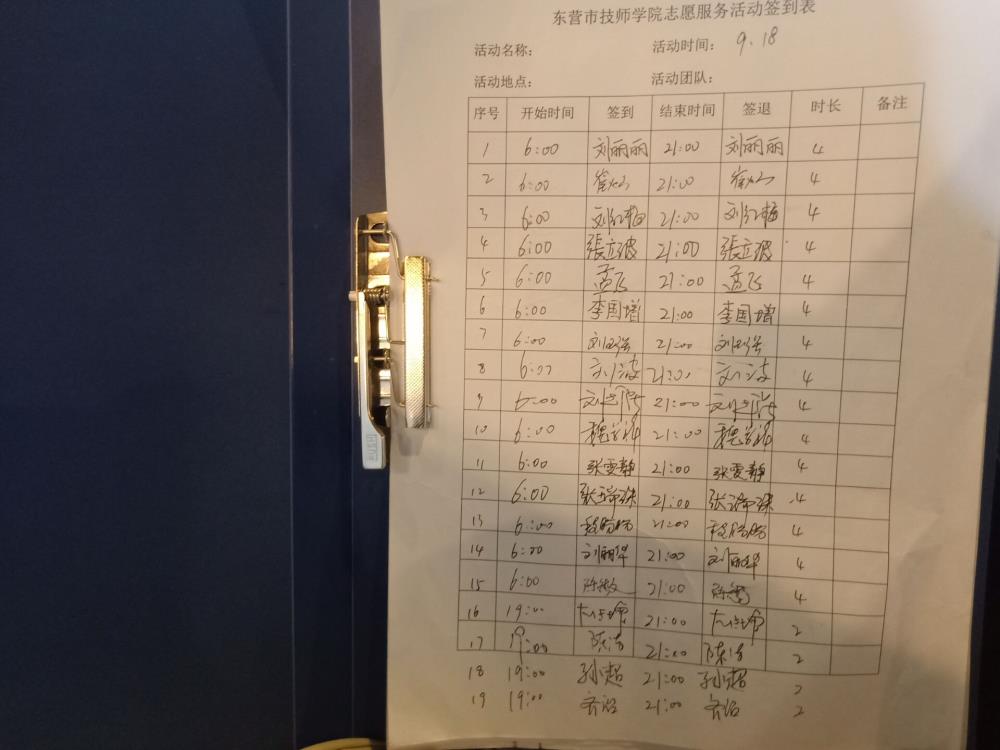 东营市技师学院志愿服务活动签到表
活动名称: 活动时间: 9.18
活动地点: 活动团队:
序号 开始时间 签到 结束时间 签退 时长 备注
1 6:00 刘丽丽 21:00 刘丽丽 4
2 6:00 21:00 4
3 6:00 刘红梅 21:00 刘红梅 4
4 6:00 張立波 21:00 張立波 4
5 6:00 孟飞 21:00 孟飞 4
6 6:00 李国增 21:00 李国增 4
7 6:00 21:00 4
8 6:00 刘波 21:00 刘波 4
9 6:00 21:00 4
10 6:00 21:00 4
11 6:00 张雯静 21:00 张雯静 4
12 6:00 21:00 4
13 6:00 21:00 4
14 6:00 刘丽华 21:00 刘丽华 4
15 6:00 21:00 4
16 19:00 21:00 2
17 19:00 陈洁 21:00 陈洁 2
18 19:00 孙超 21:00 孙超 2
19 19:00 21:00 2
PUSH